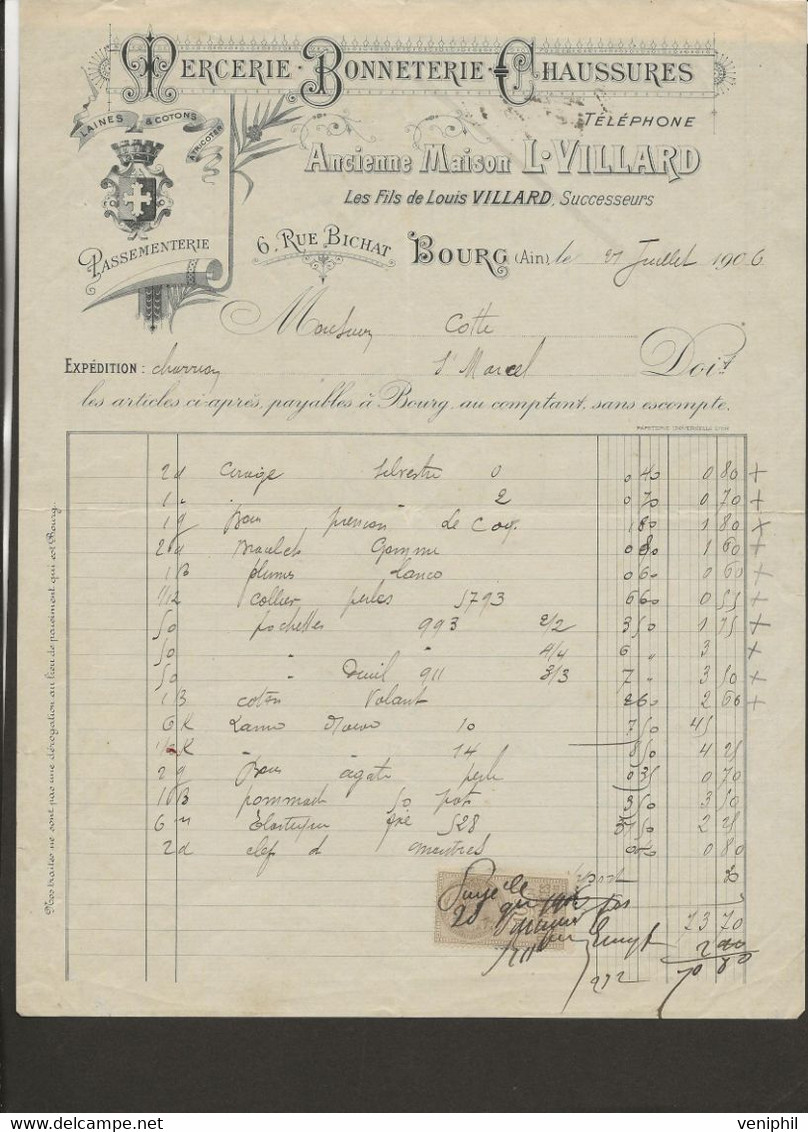 MERCERIE - BONNETERIE - CHAUSSURES
LAINES & COTONS
A TRICOTER
TÉLÉPHONE
Ancienne Maison L. VILLARD
Les Fils de Louis VILLARD, Successeurs
PASSEMENTERIE
6, RUE BICHAT BOURG (Ain), le 27 Juillet 1906
Monsieur Cotte
EXPÉDITION: St Marcel Doit
les articles ci-après, payables à Bourg, au comptant, sans escompte.
PAPETERIE UNIVERSELLE LYON
Nos traites ne sont pas une dérogation au lieu de paiement qui est Bourg.
2 d Cirage Silvestre 0 0 40 0 80 +
1 " 2 0 70 0 70 +
1 g pression de Coq 1 80 1 80 +
2 d Gomme 0 80 1 60 +
1 B plumes 0 60 0 60 +
1/12 collier perles 5793 6 60 0 55 +
50 pochettes 993 2/2 3 50 1 75 +
50 " " 4/4 6 " 3 +
50 " Deuil 911 3/3 7 " 3 50 +
1 B coton Volant 2 60 2 60 +
6 K Laine 10 7 50 45
K " 14 8 50 4 25
2 g agate perle 0 35 0 70
10 B pommade 50 pots 3 50
6 m 528 37 50 2 25
2 d clef d montres 0 80
73 70
70 80
veniphil